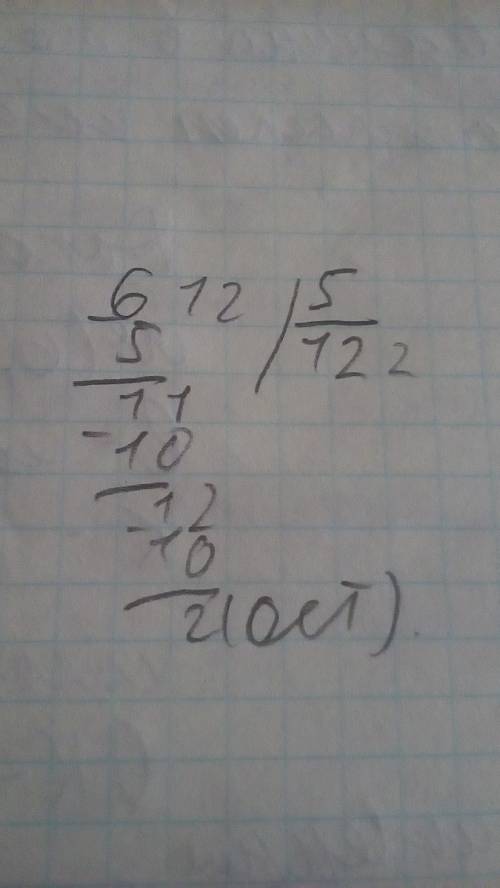 612 / 5
- 5 122
11
- 10
12
- 10
2 (ост).